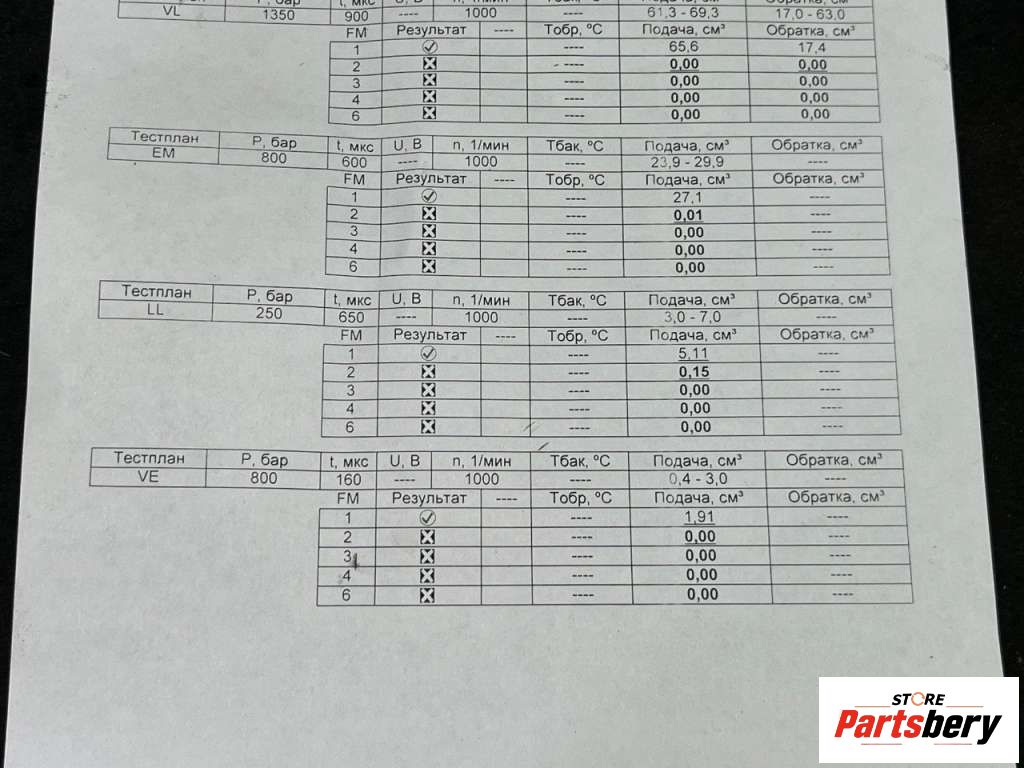 Р, бар t, мкс n, 1/мин Тбак, ºС Подача, см³ Обратка, см³
VL 1350 900 ---- 1000 ---- 61,3 - 69,3 17,0 - 63,0
FM Результат ---- Тобр, ºС Подача, см³ Обратка, см³
1 ---- 65,6 17,4
2 ---- 0,00 0,00
3 ---- 0,00 0,00
4 ---- 0,00 0,00
6 ---- 0,00 0,00
Тестплан Р, бар t, мкс U, В n, 1/мин Тбак, ºС Подача, см³ Обратка, см³
EM 800 600 ---- 1000 ---- 23,9 - 29,9 ----
FM Результат ---- Тобр, ºС Подача, см³ Обратка, см³
1 ---- 27,1 ----
2 ---- 0,01 ----
3 ---- 0,00 ----
4 ---- 0,00 ----
6 ---- 0,00 ----
Тестплан Р, бар t, мкс U, В n, 1/мин Тбак, ºС Подача, см³ Обратка, см³
LL 250 650 ---- 1000 ---- 3,0 - 7,0 ----
FM Результат ---- Тобр, ºС Подача, см³ Обратка, см³
1 ---- 5,11 ----
2 ---- 0,15 ----
3 ---- 0,00 ----
4 ---- 0,00 ----
6 ---- 0,00 ----
Тестплан Р, бар t, мкс U, В n, 1/мин Тбак, ºС Подача, см³ Обратка, см³
VE 800 160 ---- 1000 ---- 0,4 - 3,0 ----
FM Результат ---- Тобр, ºС Подача, см³ Обратка, см³
1 ---- 1,91 ----
2 ---- 0,00 ----
3 ---- 0,00 ----
4 ---- 0,00 ----
6 ---- 0,00 ----
STORE
Partsbery